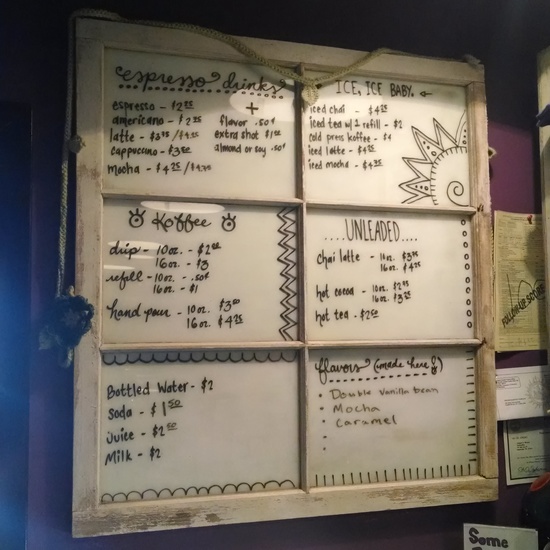 espresso drinks
espresso - $2.25
americano - $2.75
latte - $3.75/$4.25
cappuccino - $3.50
mocha - $4.25/$4.75
+
flavor .50¢
extra shot $1.00
almond or soy .50¢
ICE, ICE BABY.
iced chai - $4.25
iced tea w/ 1 refill - $2
cold press koffee - $4
iced latte - $4.25
iced mocha - $4.75
Koffee
drip - 10oz. - $2.50
16oz. - $3
refill - 10oz. - .50¢
16oz. - $1
hand pour - 10oz. $3.50
16oz. $4.25
....UNLEADED....
chai latte - 10oz. $3.75
16oz. $4.25
hot cocoa - 10oz. $2.75
16oz. $3.25
hot tea - $2.50
Bottled Water - $2
Soda - $1.50
Juice - $2.50
Milk - $2
flavors (made here!)
• Double Vanilla bean
• Mocha
• Caramel
Some